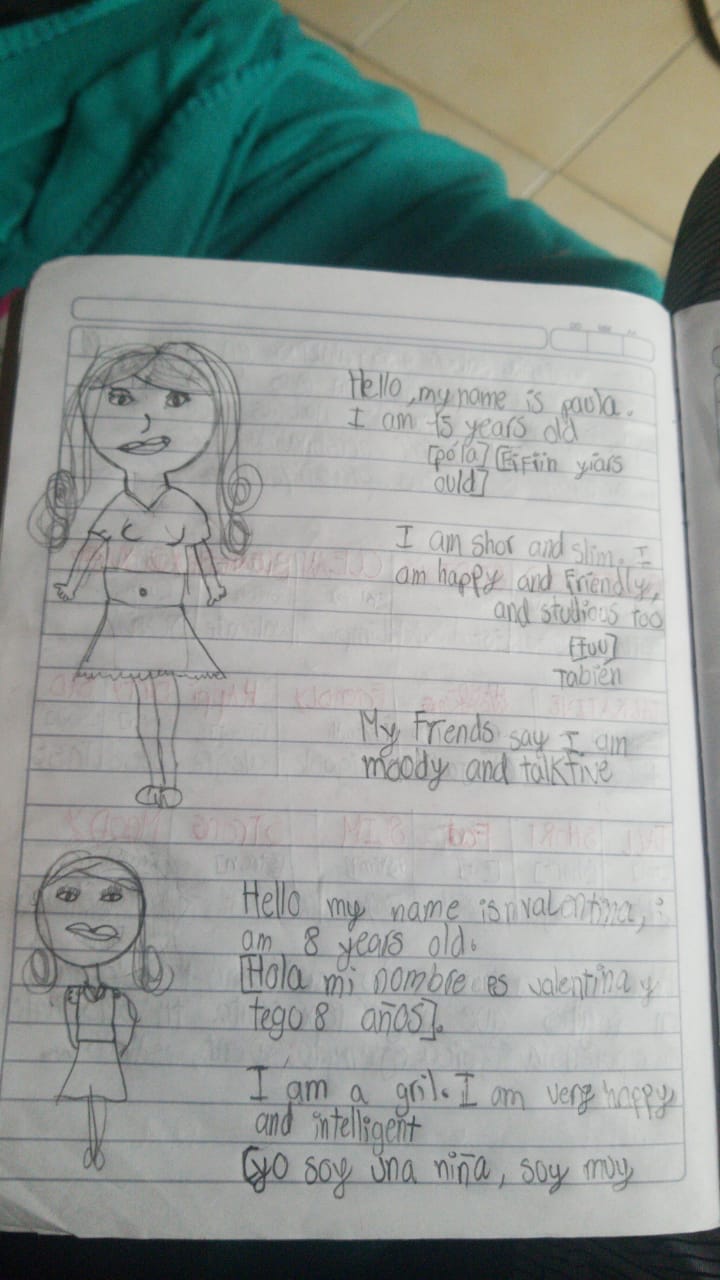 Hello, my name is paula.
I am 15 years old
[póla] [Fifiin yiars
ould]
I am shor and slim. I
am happy and Friendly,
and studious too
[tuu]
Tabien
My Frends say I am
moody and talktive
Hello my name is valentina, i
am 8 years old.
[Hola mi nombre es valentina y
tego 8 años].
I am a gril. I am very happy
and intelligent
[yo soy una niña, soy muy